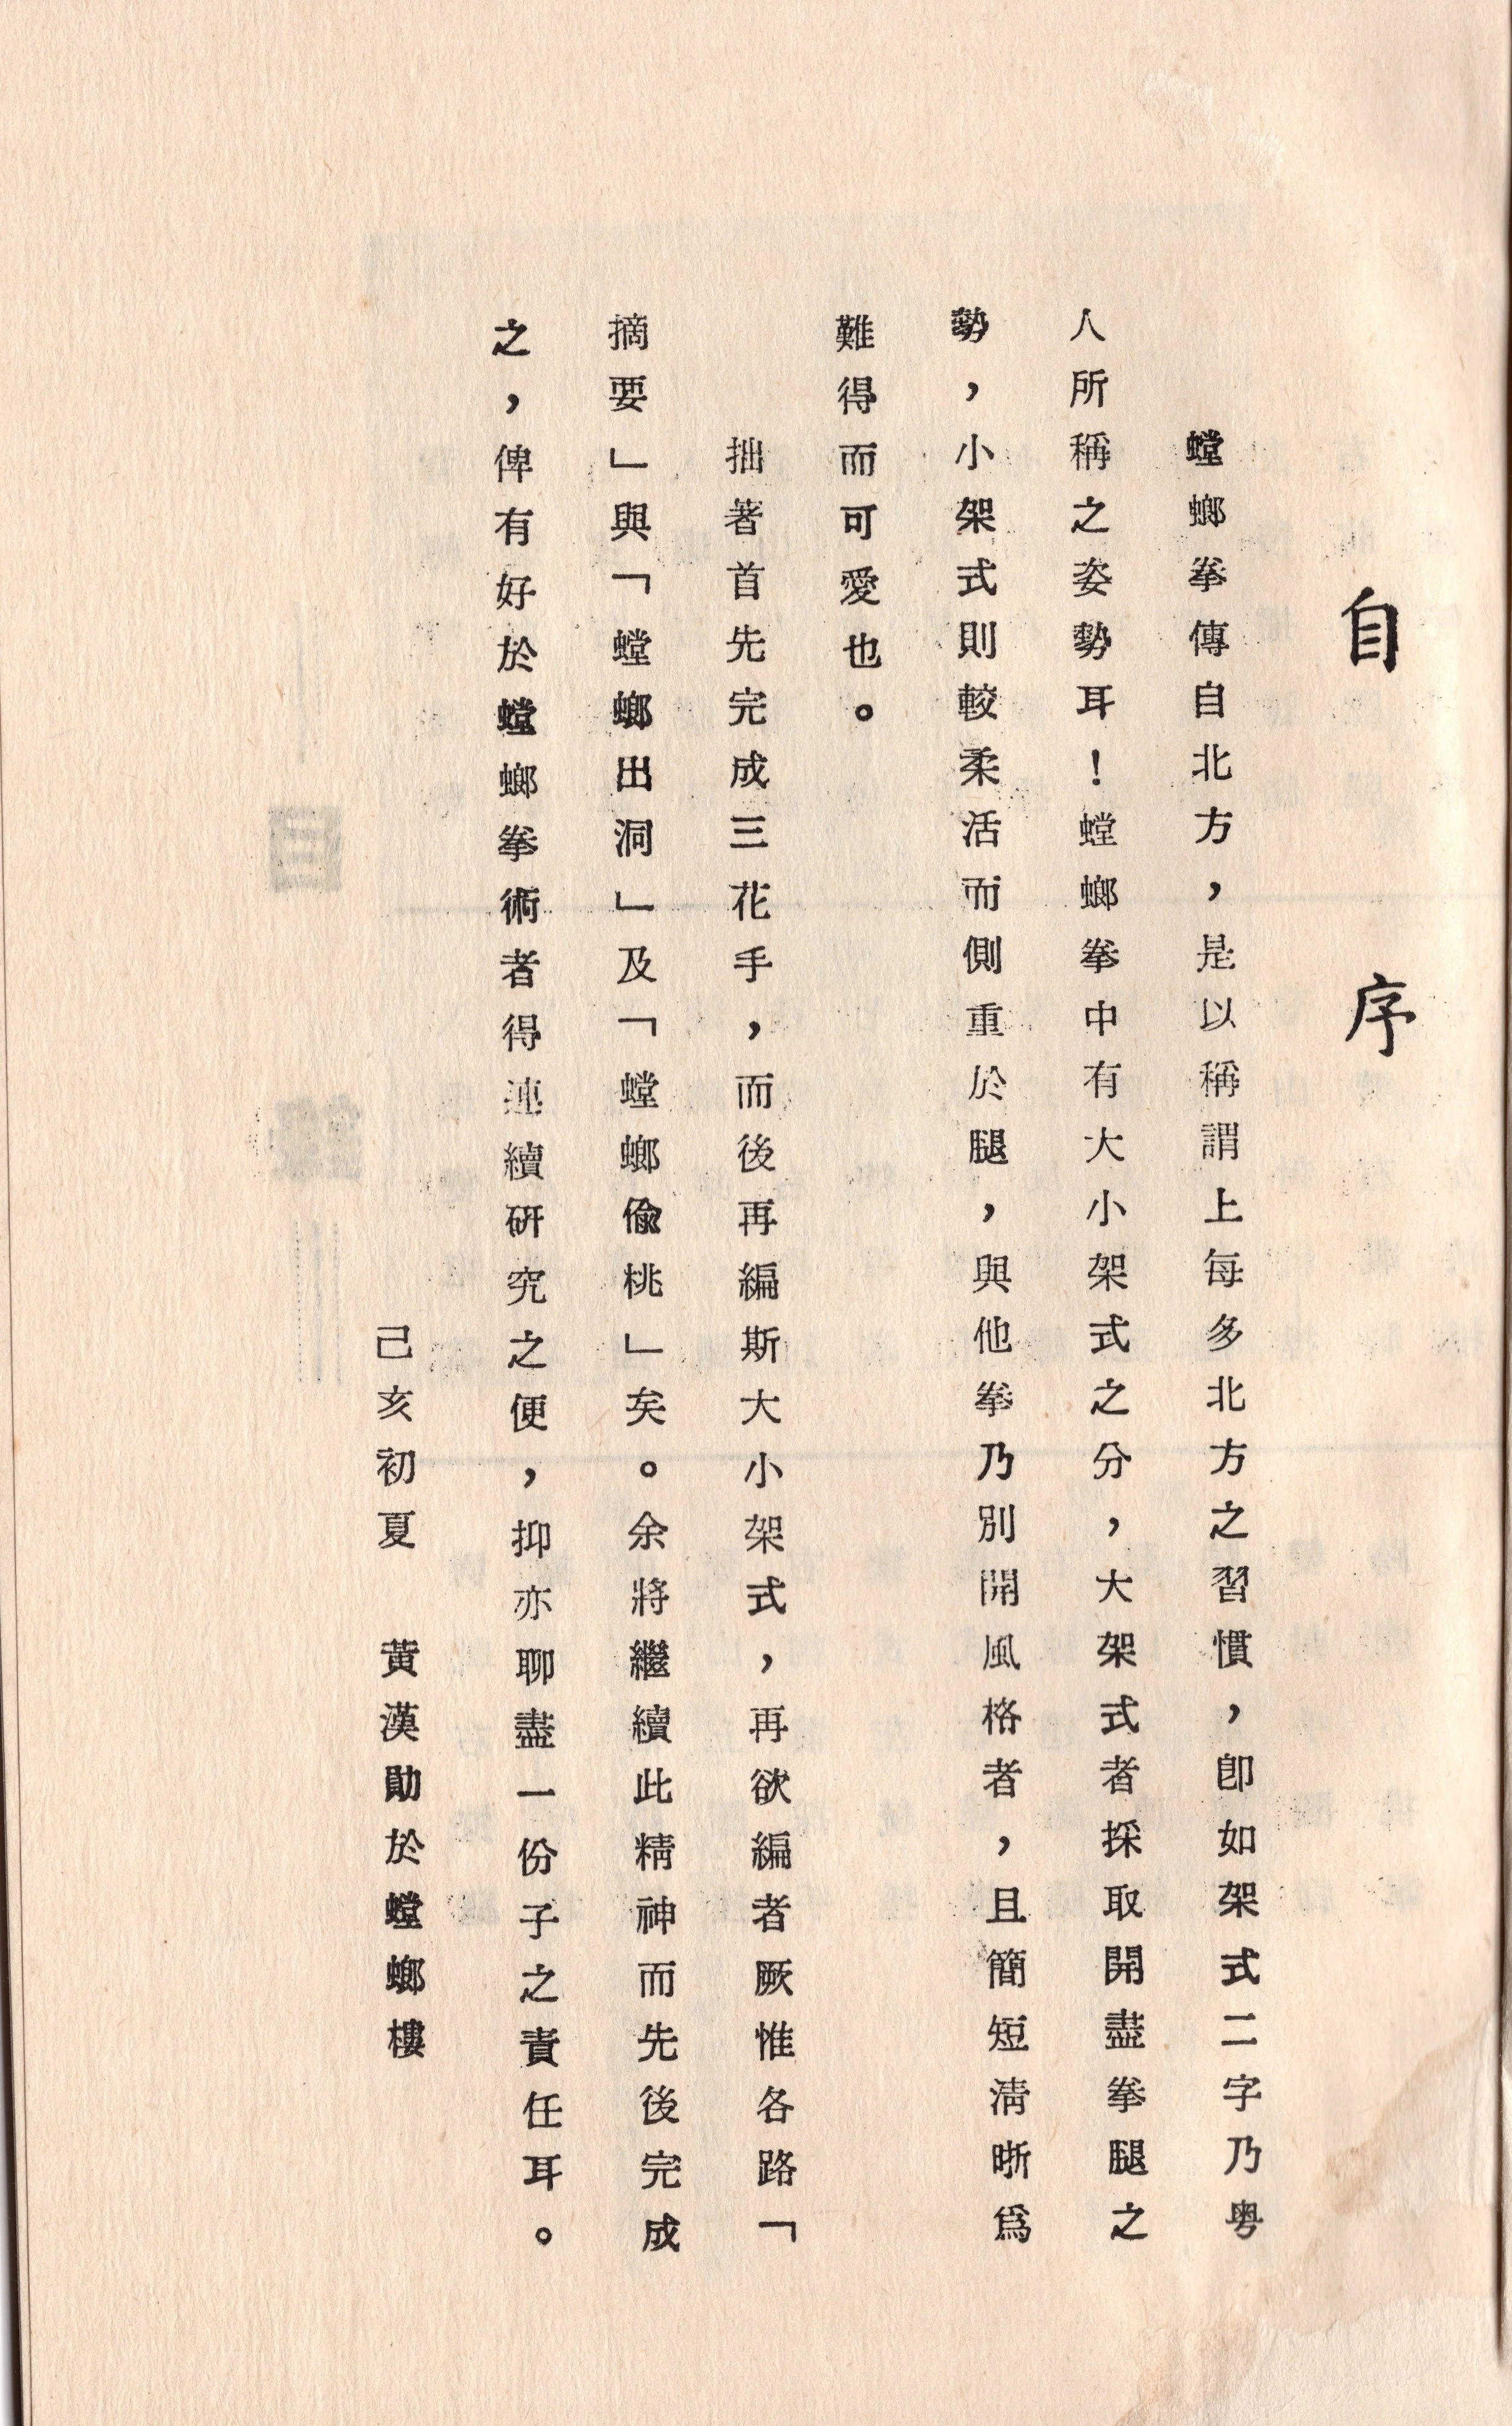 自序
螳螂拳傳自北方，是以稱謂上每多北方之習慣，卽如架式二字乃粵
人所稱之姿勢耳！螳螂拳中有大小架式之分，大架式者採取開盡拳腿之
勢，小架式則較柔活而側重於腿，與他拳乃別開風格者，且簡短淸晰爲
難得而可愛也。
拙著首先完成三花手，而後再編斯大小架式，再欲編者厥惟各路「
摘要」與「螳螂出洞」及「螳螂偷桃」矣。余將繼續此精神而先後完成
之，俾有好於螳螂拳術者得連續研究之便，抑亦聊盡一份子之責任耳。
己亥初夏　黃漢勛於螳螂樓